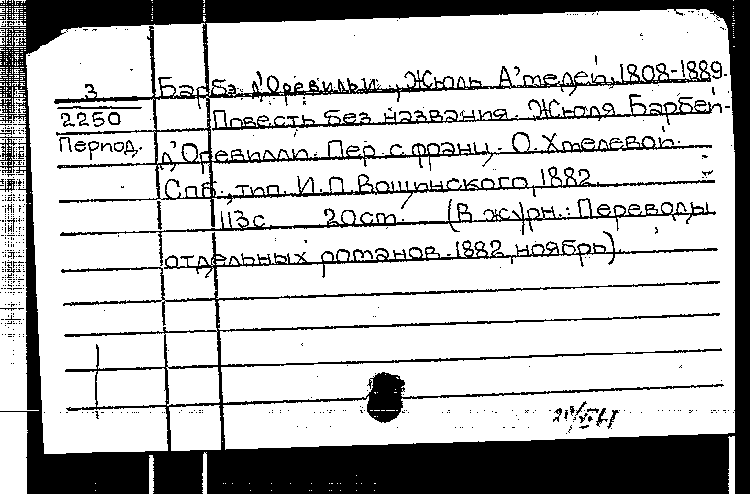 3
2250
Период.
Барбэ д'Оревильи, Жюль А'медей, 1808-1889.
Повесть без названия. Жюля Барбей-
д'Оревилли. Пер. с франц. О. Хмелевой.
Спб., тип. И.П. Вощинского, 1882.
113 с. 20 ст. (В журн.: Переводы
отдельных романов. 1882, ноябрь).